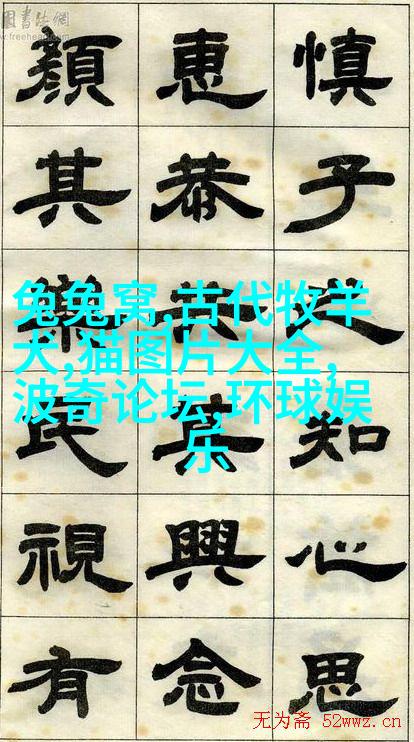 書法網
兔兔窝,古代牧羊
犬,猫图片大全,
波奇论坛,环球娱
乐
慎子知心思
惠恭興念
顏其樂民視有
无为斋 52wwz.cn